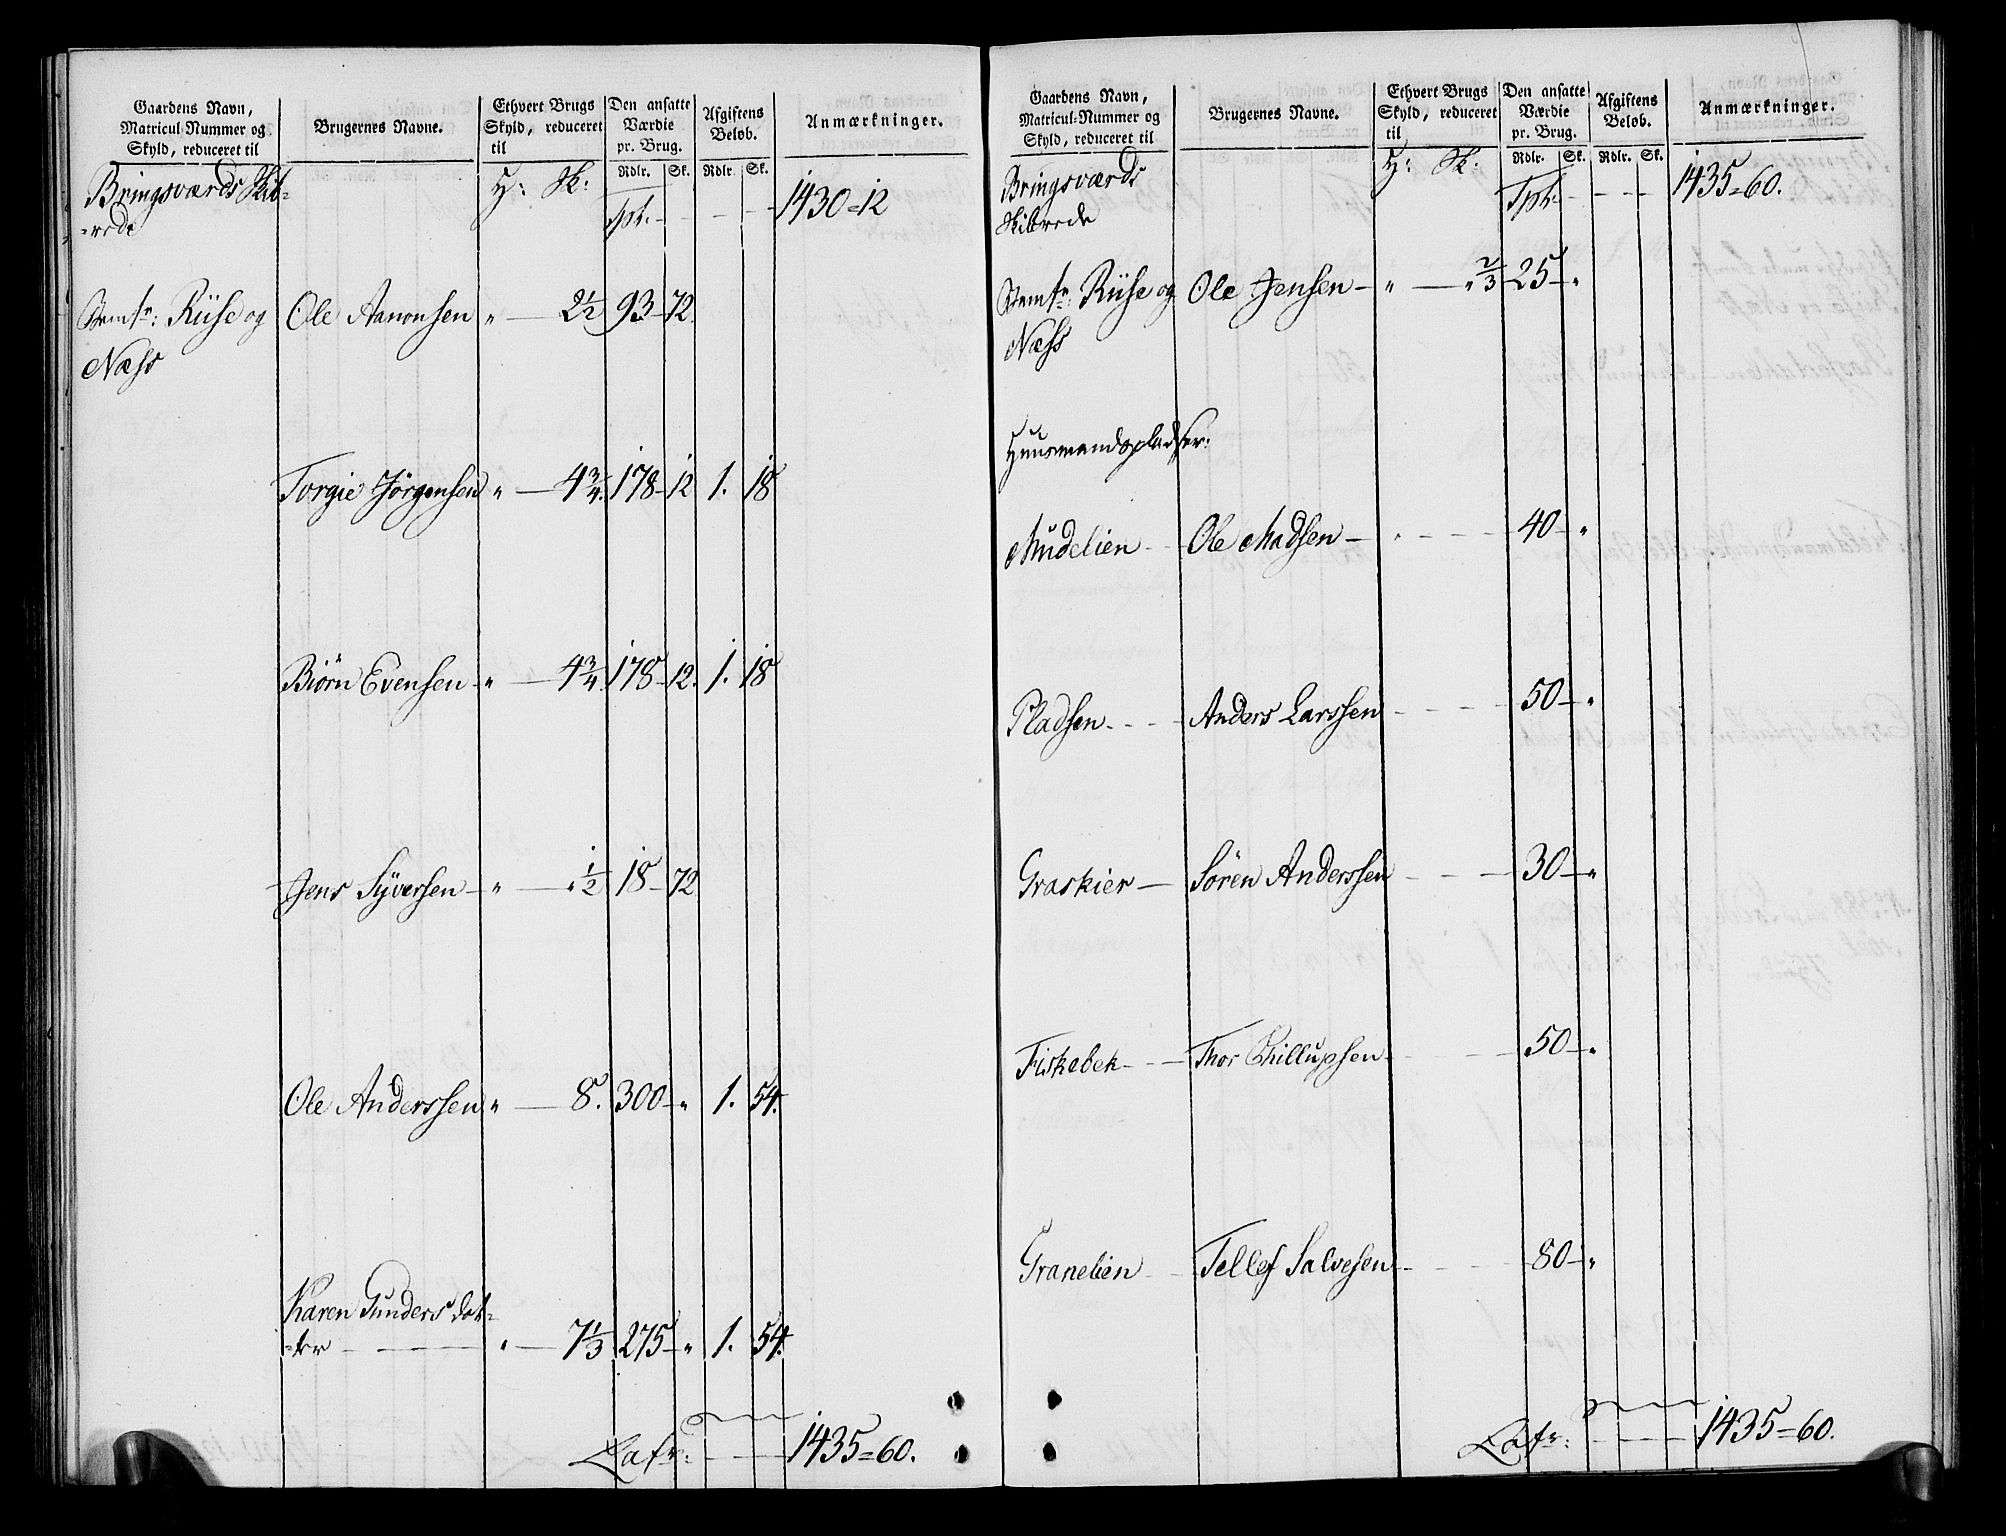 Gaardens Navn, Matricul-Nummer og Skyld, reduceret til
Brugernes Navne.
Ethvert Brugs Skyld, reduceret til
Den ansatte Værdie pr. Brug.
Afgiftens Beløb.
Anmærkninger.
Rdlr. Sk. Rdlr. Sk.
Bringsværds Skib=
=rede
H: Sk:
Tpt. - - - 1430=12
Riise og Ole Aanonsen " — 2½ 93 – 72.
Næss
Torgie Jörgensen " — 4¾. 178 – 12 1. 18
Biörn Evensen – " — 4¾. 178 – 12. 1. 18
Jens Syversen – " — " ½ 18 – 72
Ole Anderssen " — 8. 300 – " 1. 54.
Karen Gunders dat=
=ter — " — 7⅓ 275 – " 1. 54.
Latr: - - - 1435=60.
Gaardens Navn, Matricul-Nummer og Skyld, reduceret til
Brugernes Navne.
Ethvert Brugs Skyld, reduceret til
Den ansatte Værdie pr. Brug.
Afgiftens Beløb.
Anmærkninger.
Rdlr. Sk. Rdlr. Sk.
Bringsværds
Skibrede
H: Sk:
Tpt. - - - 1435=60.
Riise og Ole Jensen – " — " ⅔ 25 – "
Næss
Huusmandspladser:
Mudelien - - Ole Madsen — - - - 40 – "
Pladsen - - - Anders Larssen - - - 50 – "
Graskier — Sören Anderssen - - - 30 – "
Fiskebek - - - Thor Chillupsen - - - 50 – "
Granelien - - Tellef Salvesen - - - 80 – "
Latr: - - - 1435=60.